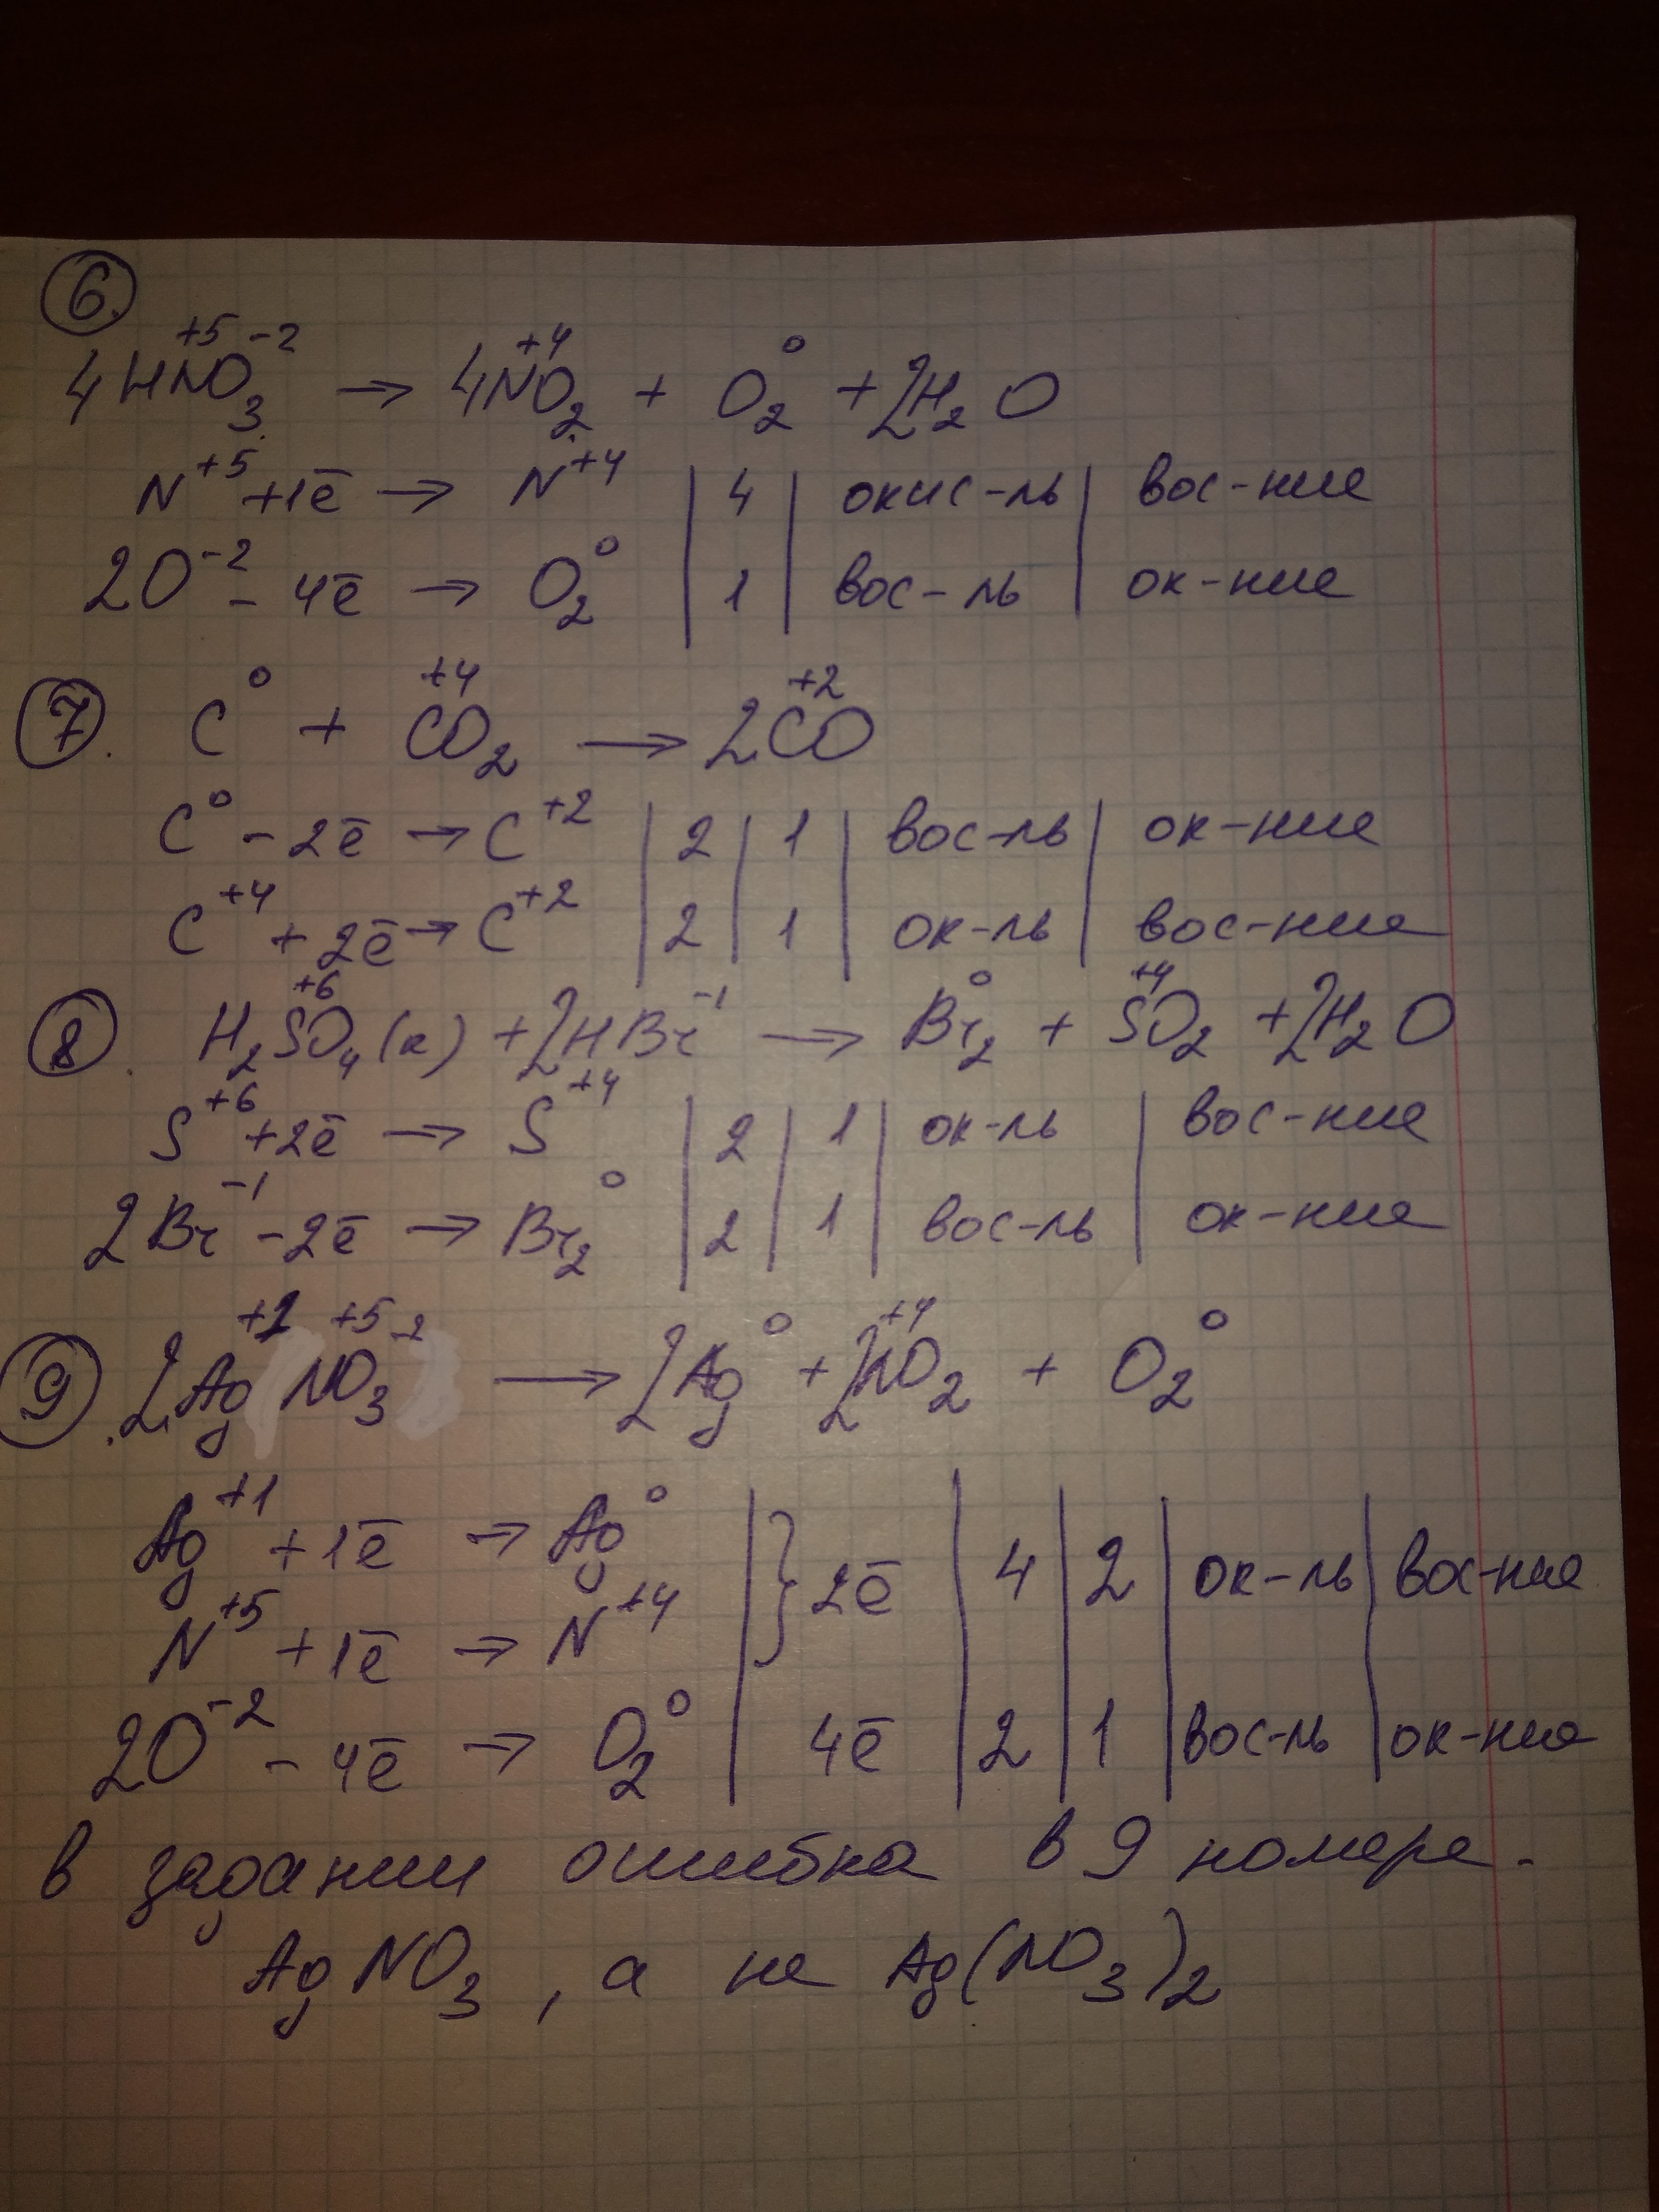 6.
4HN⁺⁵O₃⁻² → 4N⁺⁴O₂ + O₂⁰ + 2H₂O
N⁺⁵ + 1ē → N⁺⁴ | 4 | окис-ль | вос-ние
2O⁻² - 4ē → O₂⁰ | 1 | вос-ль | ок-ние
7. C⁰ + C⁺⁴O₂ → 2C⁺²O
C⁰ - 2ē → C⁺² | 2 | 1 | вос-ль | ок-ние
C⁺⁴ + 2ē → C⁺² | 2 | 1 | ок-ль | вос-ние
8. H₂S⁺⁶O₄(к) + 2HBr⁻¹ → Br₂⁰ + S⁺⁴O₂ + 2H₂O
S⁺⁶ + 2ē → S⁺⁴ | 2 | 1 | ок-ль | вос-ние
2Br⁻¹ - 2ē → Br₂⁰ | 2 | 1 | вос-ль | ок-ние
9. 2Ag⁺¹N⁺⁵O₃⁻² → 2Ag⁰ + 2N⁺⁴O₂ + O₂⁰
Ag⁺¹ + 1ē → Ag⁰ | } 2ē | 4 | 2 | ок-ль | вос-ние
N⁺⁵ + 1ē → N⁺⁴
2O⁻² - 4ē → O₂⁰ | 4ē | 2 | 1 | вос-ль | ок-ние
в задании ошибка в 9 номере.
AgNO₃, а не Ag(NO₃)₂